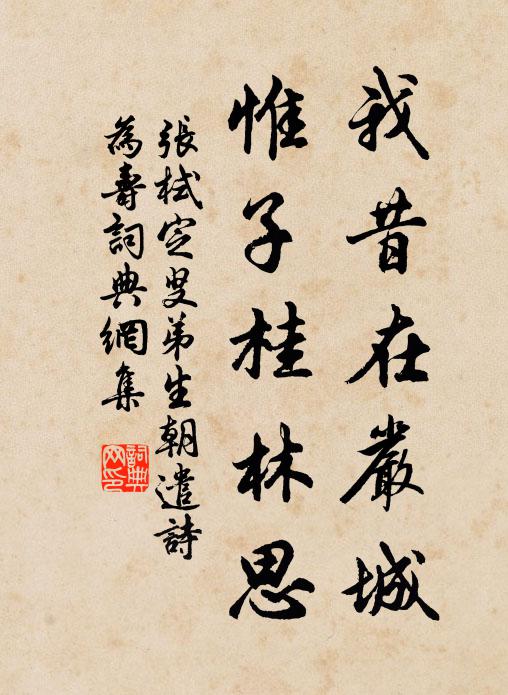 我昔在嚴城
惟子桂林思
張栻定叟弟生朝遣詩
為壽詞典網集
詞典
网印